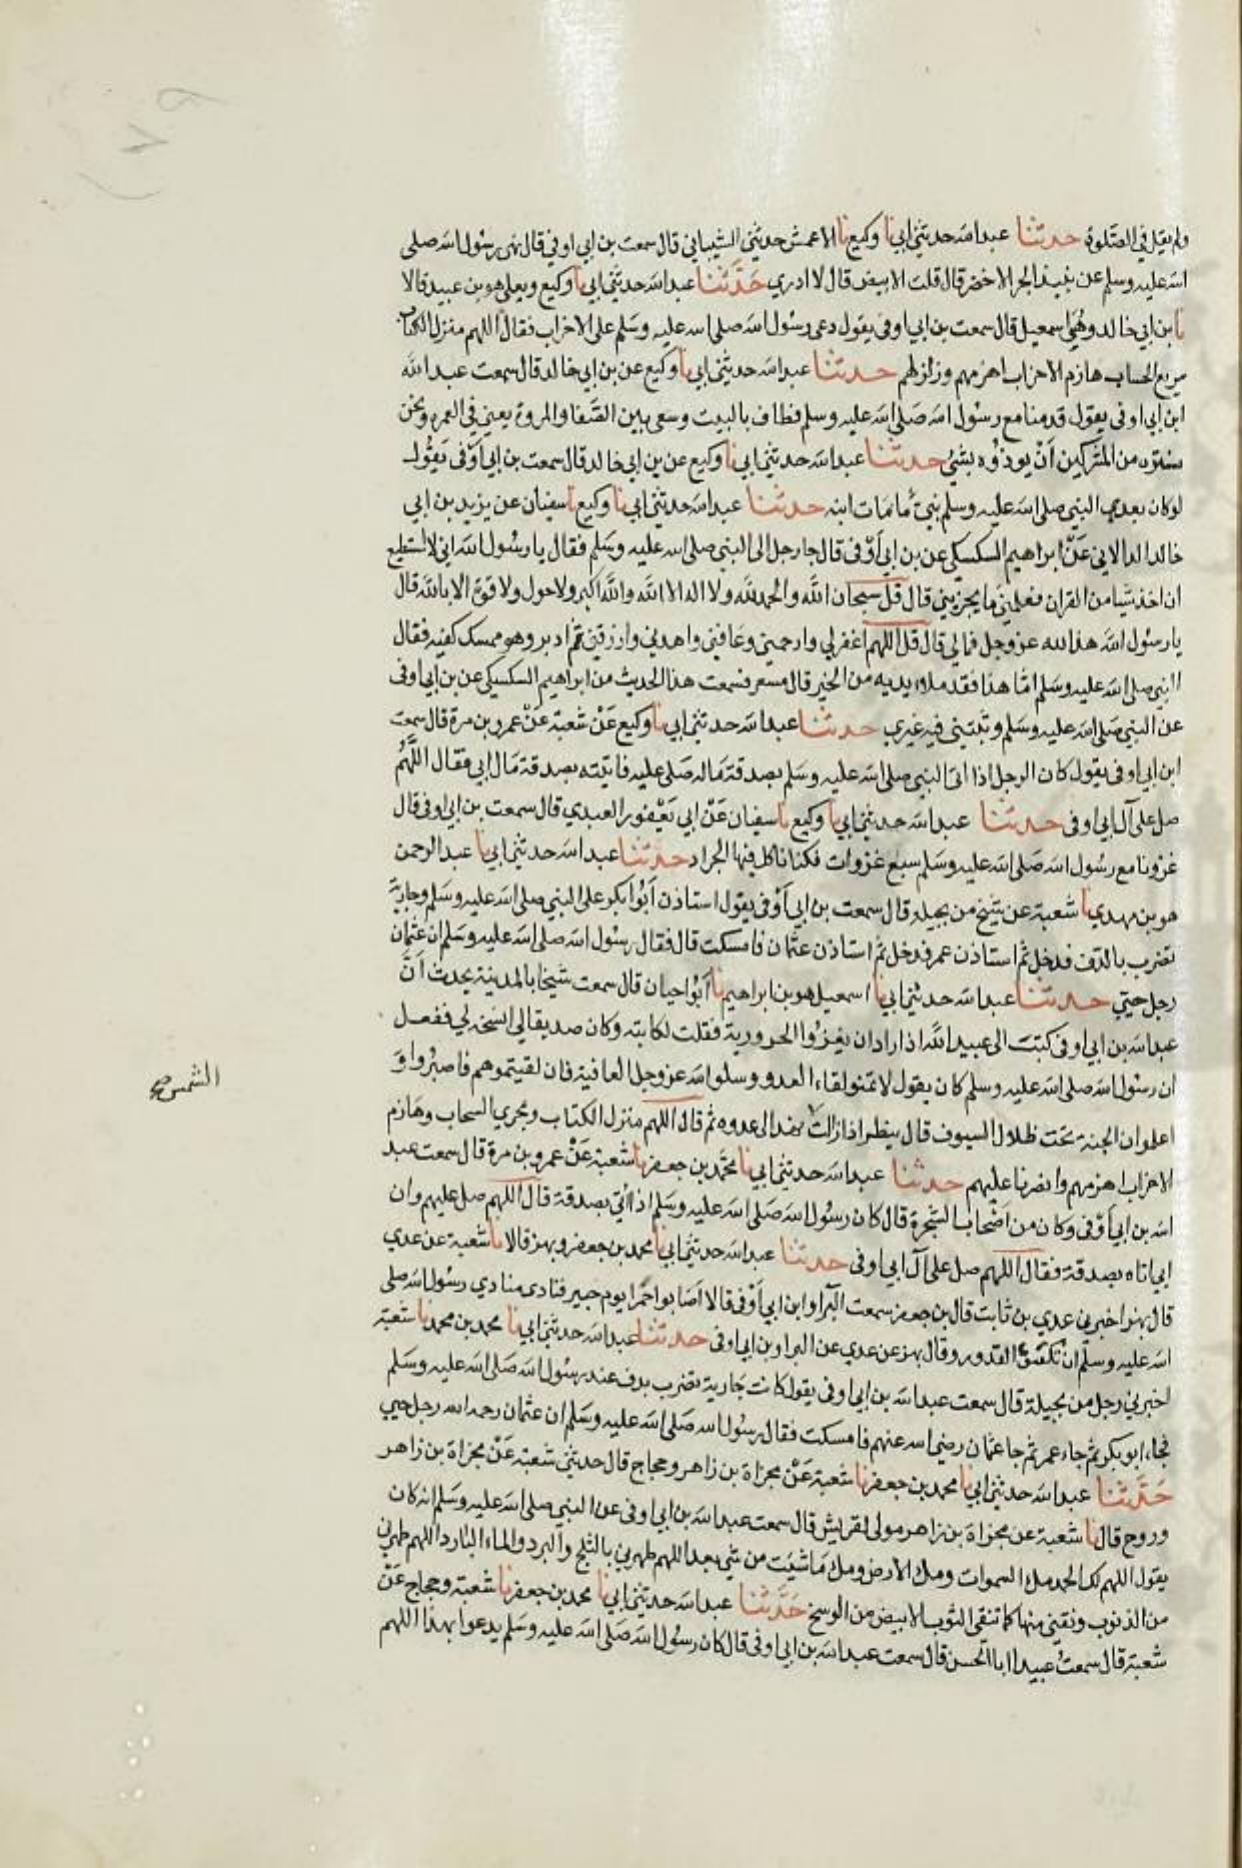 ولم يقل في الصلوة حدثنا عبد الله حدثني ابي نا وكيع نا الاعمش حدثني الشيباني قال سمعت بن ابي اوفى قال نهى رسول الله صلى
الله عليه وسلم عن نبيذ الجر الاخضر قال قلت الابيض قال لا ادري حَدَّثَنا عبد الله حدثني ابي نا وكيع ويعلى هو بن عبيد قالا
نا بن ابي خالد وهُوَ اسمعيل قال سمعت بن ابي اوفى يقول دعى رسول الله صلى الله عليه وسلم على الاحزاب فقال اللهم منزل الكتاب
سريع الحساب هازم الاحزاب اهزمهم وزلزلهم حدثنا عبد الله حدثني ابي نا وكيع عن بن ابي خالد قال سمعت عبد الله
ابن ابي اوفى يقول قدمنا مع رسول الله صَلى الله عليه وسلم فطاف بالبيت وسعى بين الصَّفا والمروة يعني في العمرة ونحن
نستره من المشركين اَنْ يوذُوه بشئٍ حدثنا عبد الله حدثني ابي نا وكيع عن بن ابي خالد قال سمعت بن ابي اَوْفى يَقُولـ
لو كان بعد النبي صلى الله عليه وسلم نبيٌّ مَا مَات ابنه حدثنا عبد الله حدثني ابي نا وكيع نا سفيان عن يزيد بن ابي
خالد الدالاني عَنْ ابراهيم السكسكي عن بن ابي اَوْفى قال جا رجل الى النبي صلى الله عليه وسَلم فقال يا رسُول الله اني لا استطيع
ان اخذ شيا من القران فعلمني مَا يجزيني قال قل سبحان الله والحمدلله ولا اله الا الله والله اكبر ولا حول ولا قوة الا بالله قال
يا رسُول الله هذا لله عز وجل فمالي قال قل اللهم اغفر لي وارحمني وعَافني واهدني وارزقني ثمَّ ادبر وهو ممسك كفيه فقال
النبي صلى الله عليه وسَلم امَّا هذا فقد ملا يديه من الخير قال مسعر فسمعت هذا الحديث من ابراهيم السكسكي عن بن ابي اوفى
عن النبي صَلى الله عليه وسَلم وثبّتني فيه غيري حدثنا عبد الله حدثني ابي نا وكيع عَنْ شعبة عَنْ عمرو بن مرة قال سمعت
ابن ابي اوفى يقول كان الرجل اذا اتى النبي صلى الله عليه وسَلم بصدقة مَاله صَلى عليه فاتيته بصدقة مَال ابي فقال اللَّهُم
صل على آل ابي اوفى حدثنا عبد الله حدثني ابي نا وكيع نا سفيان عَنْ ابي يَعْفور العبدي قال سمعت بن ابي اوفى قال
غزونا مع رسُول الله صَلى الله عليه وسَلم سبع غزوات فكنا ناكل فيها الجراد حدثنا عبد الله حدثني ابي نا عبد الرحمن
هو بن مهدي نا شعبة عن شيخ من بجيلة قال سمعت بن ابي اَوْفى يقول استاذن اَبُو بكر على النبي صلى الله عليه وسَلم وجاريةٌ
تضرب بالدف فدخل ثم استاذن عمر فدخل ثم استاذن عثمان فامسكت قال فقال رسُول الله صلى الله عليه وسَلم ان عثمان
رجل حيي حدثنا عبد الله حدثني ابي نا اسمعيل هو بن ابراهيم نا اَبُو حيان قال سمعت شيخا بالمدينة يحدث اَنَّ
عبد الله بن ابي اوفى كتبَ الى عبيد الله اذ اراد ان يغزُوا الحرورية فقلت لكاتبه وكان صديقا لي انسخه لي ففعـل
ان رسُول الله صلى الله عليه وسَلم كان يقول لا تمنوا لقاء العدو وسلوا الله عز وجل العافية فان لقيتموهم فاصبرُوا وَ
اعلموا ان الجنة تحت ظلال السيوف قال ينظر اذا زالت نهد الى عدوه ثم قال اللهم منزل الكتاب ومجري السحاب وهازم
الشمس صح
الاحزاب اهزمهم وانصرنا عليهم حدثنا عبد الله حدثني ابي نا محمَّد بن جعفر نا شعبة عَنْ عمرو بن مرة قال سمعت عبد
الله بن ابي اَوْفى وكان من اَصْحاب الشجرة قال كان رسُول الله صَلى الله عليه وسَلم اذا اُتي بصدقة قال اللهم صل عليهم وان
ابي اتاه بصدقة فقال اللهم صل على آل ابي اوفى حدثنا عبد الله حدثني ابي نا محمد بن جعفر وبهز قالا نا شعبة عن عدي
قال بهز اخبرني عدي بن ثابت قال بن جعفر سمعت البَرا وابن ابي اَوْفى قالا اَصَابوا حمُرا يوم خيبر فنادى منادي رسُول الله صلى
الله عليه وسلم ان تكفئوا القدور وقال بهز عن عدي عن البرا وبن ابي اوفى حدثنا عبد الله حدثني ابي نا محمد بن محمد نا شعبة
اخبرني رجل من بجيلة قال سمعت عبد الله بن ابي اوفى يقول كانت جَارية تضرب بدف عند رسُول الله صَلى الله عليه وسَلم
فجاء ابو بكر ثم جاء عمر ثم جا عثمان رضي الله عنهم فامسكت فقال رسُول الله صَلى الله عليه وسَلم ان عثمان رحمه الله رجل حيي
حَدَّثنا عبد الله حدثني ابي نا محمد بن جعفر نا شعبة عَنْ مجزاة بن زاهر وحجاج قال حدثني شعبة عَنْ مجزاة بن زاهر
وروح قال نا شعبة عن مجزاة بن زاهر مولى لقريش قال سمعت عبد الله بن ابي اوفى عن النبي صلى الله عليه وسَلم انه كان
يقول اللهم لك الحمد ملء السموات وملء الارض وملء مَا شيت من شي بعد اللهم طهرني بالثلج والبرد والماء البارد اللهم طهرني
من الذنوب ونقني منها كما تنقي الثوب الابيض من الوسخ حَدَّثنا عبد الله حدثني ابي نا محمد بن جعفر نا شعبة وحجاج عَنْ
شعبة قال سمعتُ عبيدا ابا الحسن قال سمعت عبد الله بن ابي اوفى قال كان رسُول الله صَلى الله عليه وسَلم يدعوا بهذا اللهم